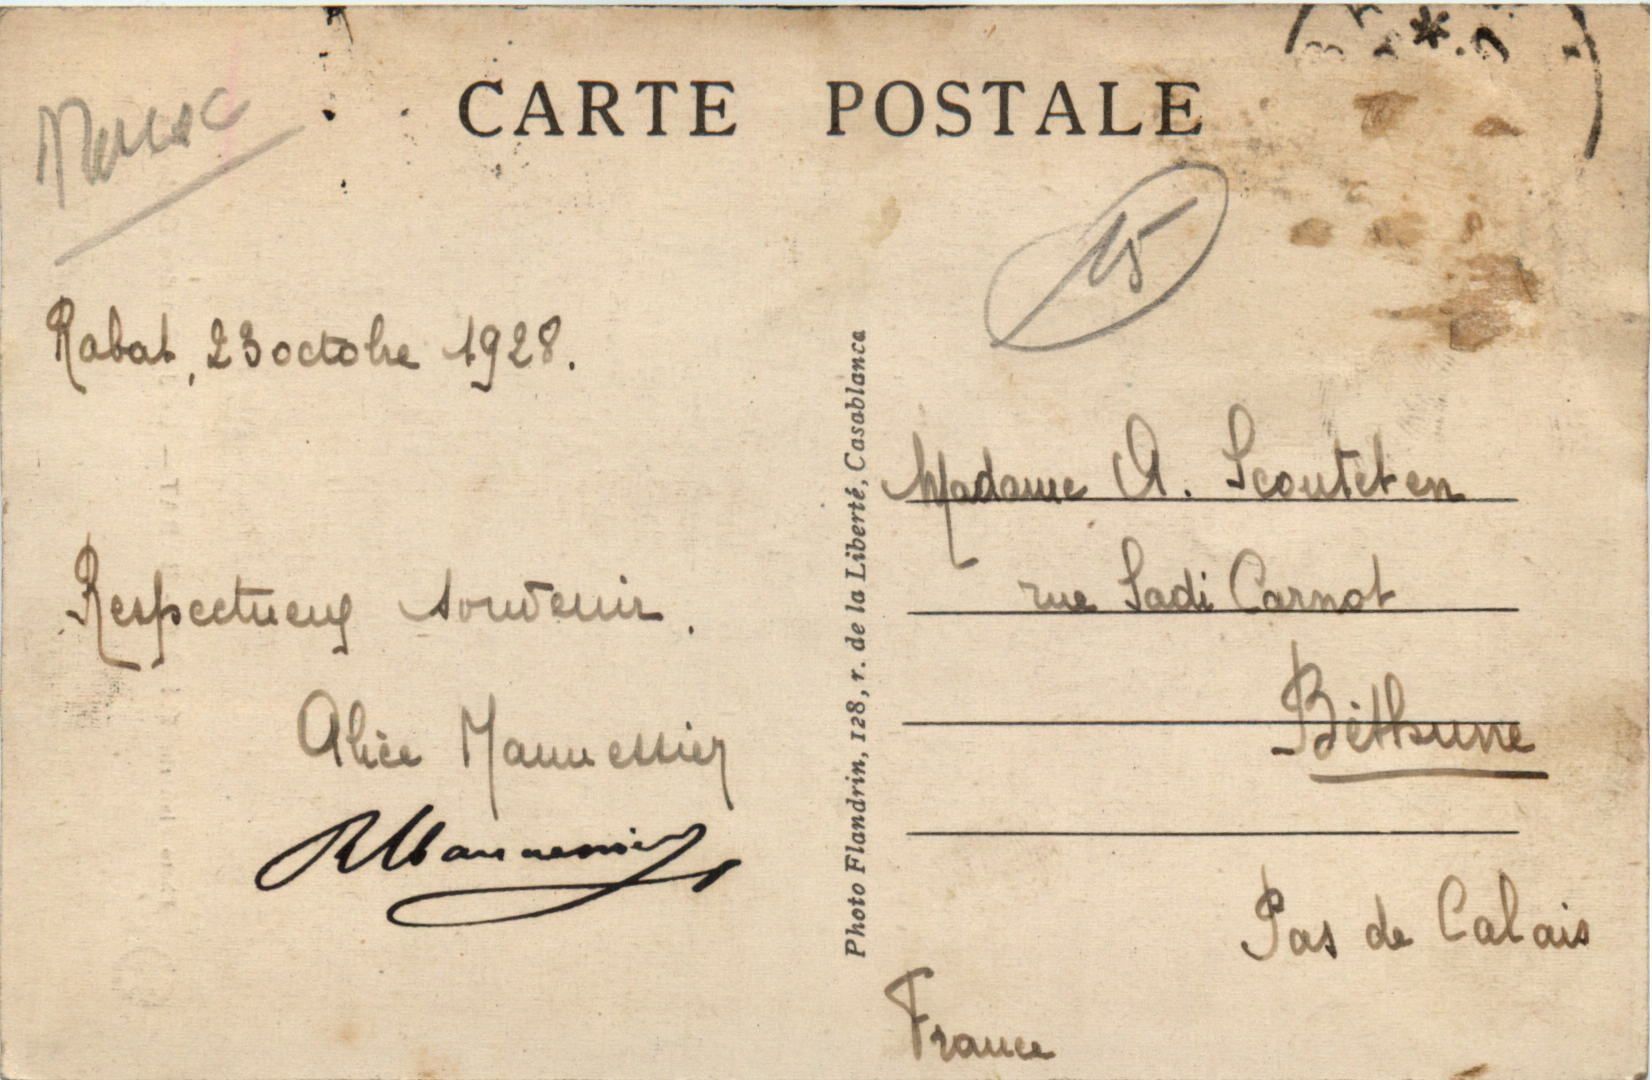 CARTE POSTALE
Maroc
15
Rabat, 23 octobre 1928.
Respectueux souvenir.
Alice Mannessier
RMannessier
Photo Flandrin, 128, r. de la Liberté, Casablanca
Madame A. Scouteten
rue Sadi Carnot
Béthune
Pas de Calais
France